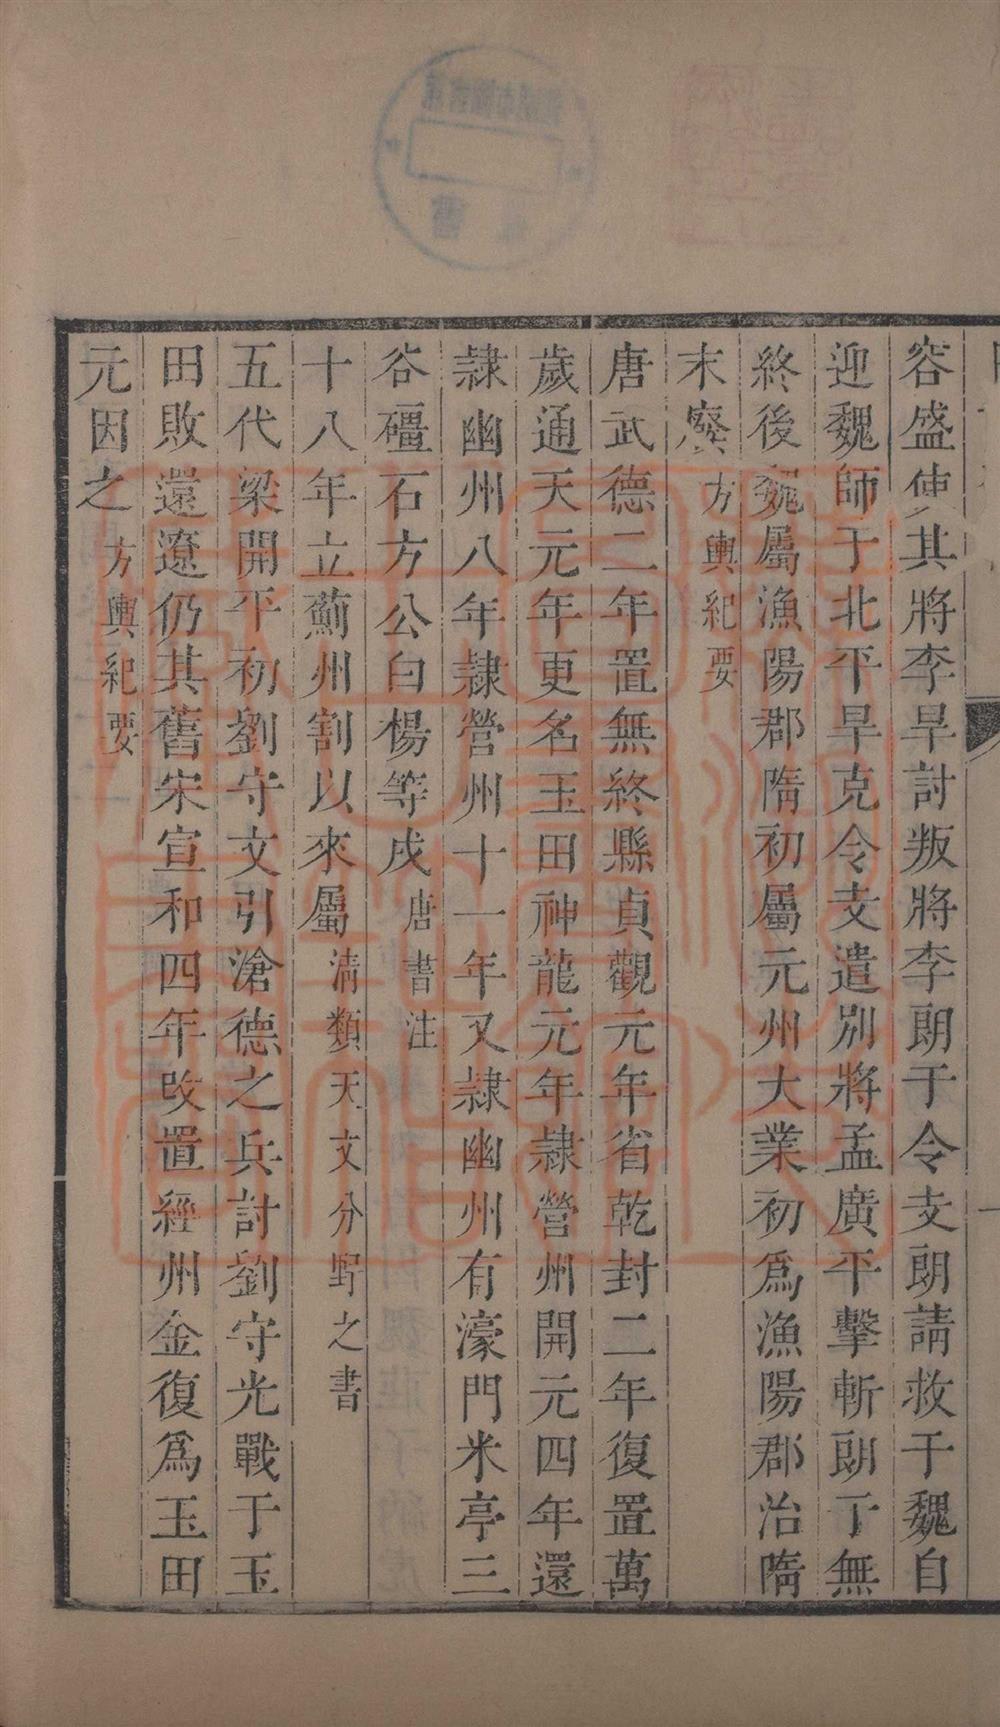 容盛使其將李旱討叛將李朗于令支朗請救于魏自
迎魏師于北平旱克令支遣別將孟廣平擊斬朗于無
終後魏屬漁陽郡隋初屬元州大業初爲漁陽郡治隋
末廢方輿紀要
唐武德二年置無終縣貞觀元年省乾封二年復置萬
歲通天元年更名玉田神龍元年隷營州開元四年還
隷幽州八年隷營州十一年又隷幽州有濠門米亭三
谷礓石方公白楊等戍唐書注
十八年立薊州割以來屬清類天文分野之書
五代梁開平初劉守文引滄德之兵討劉守光戰于玉
田敗還遼仍其舊宋宣和四年改置經州金復爲玉田
元因之方輿紀要